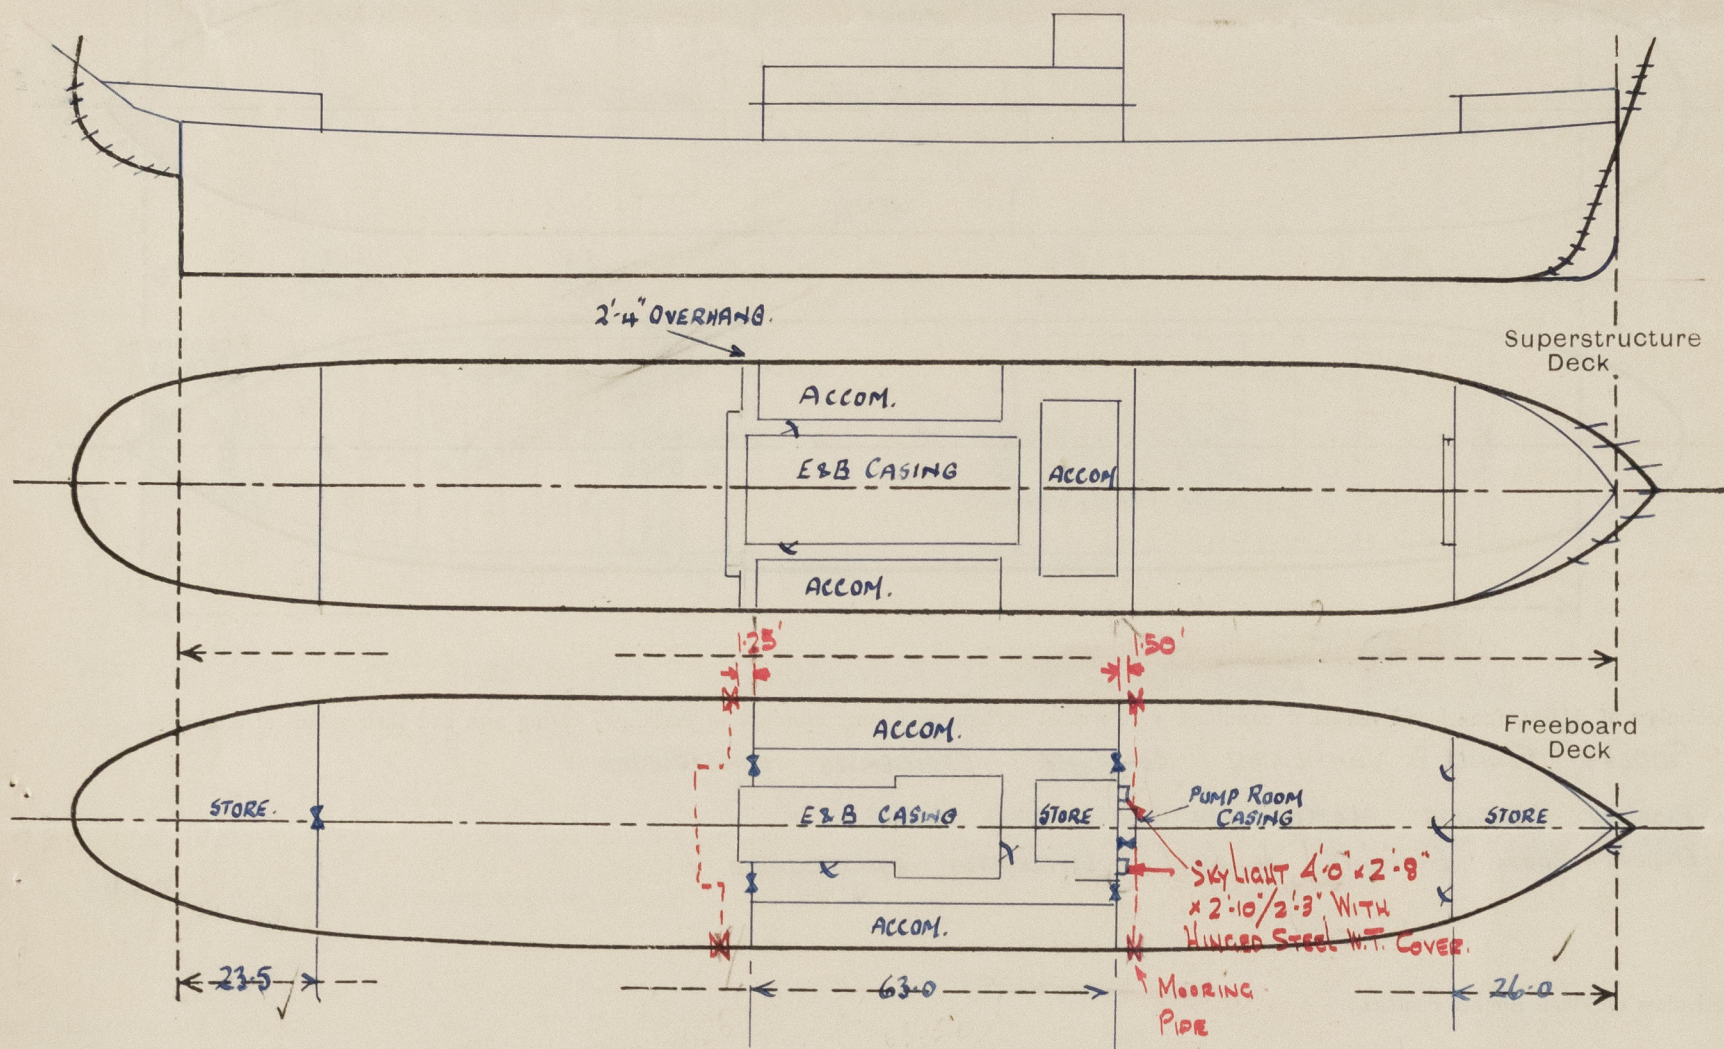 2'-4" OVERHANG.
Superstructure
Deck
ACCOM.
E&B CASING
ACCOM
ACCOM.
1.25'
1.50'
Freeboard
Deck
ACCOM.
STORE.
E&B CASING
STORE
PUMP ROOM
CASING
STORE
SKYLIGHT 4'-0" x 2'-8"
x 2'-10"/2'-3" WITH
HINGED STEEL W.T. COVER.
ACCOM.
23.5
63.0
26.0
MOORING
PIPE